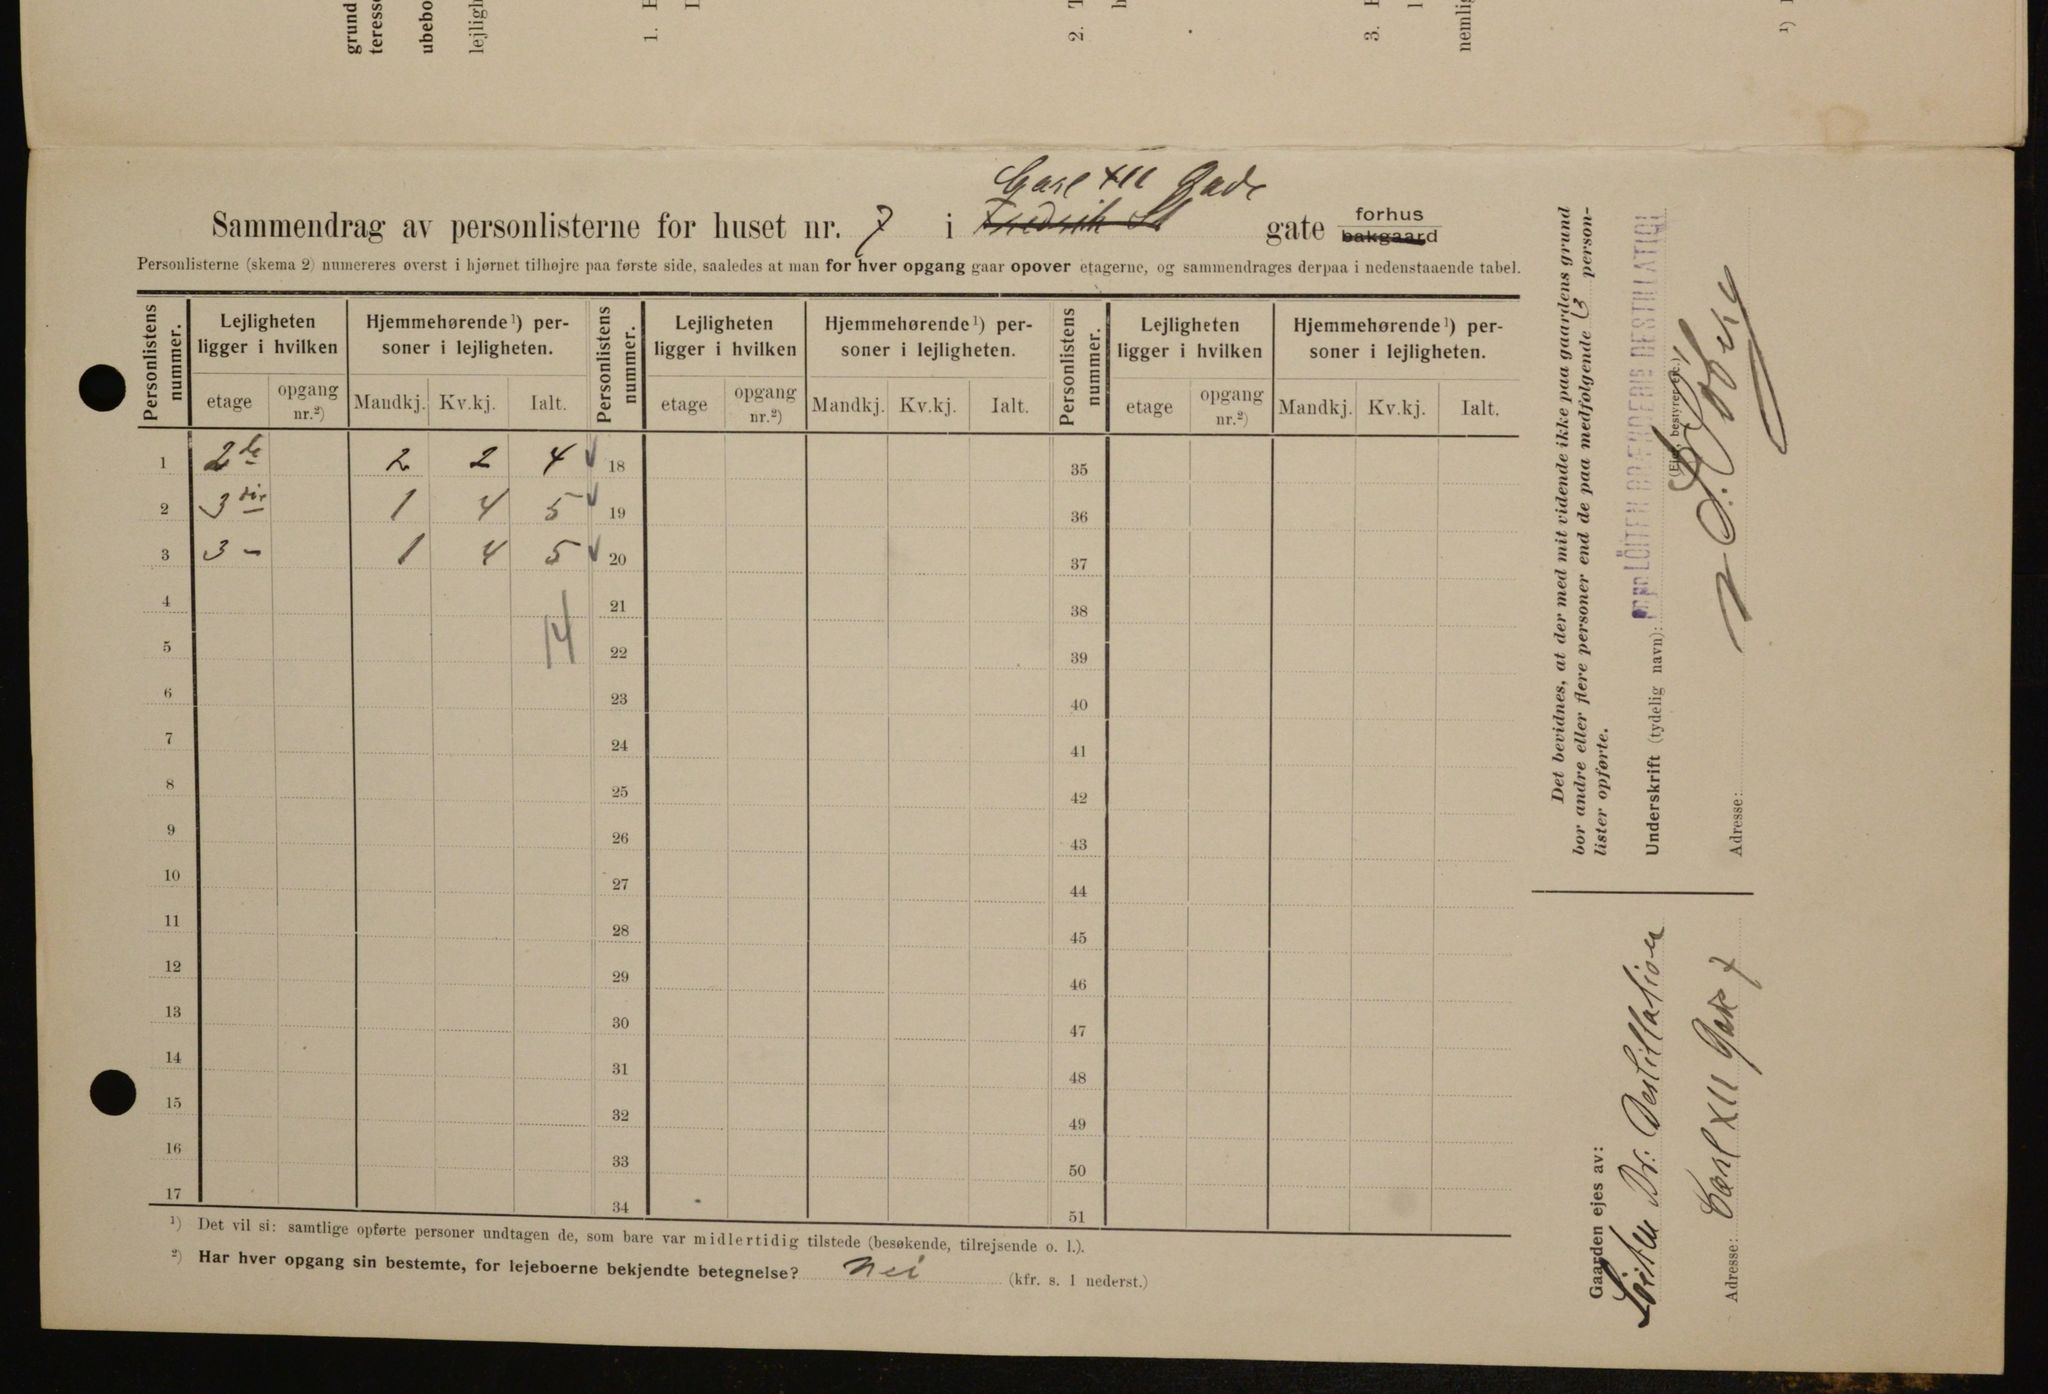 grund
teresse
ubebo
lejligh
1.
2. T
3.
nemlig
¹)
Carl XII Gade
Sammendrag av personlisterne for huset nr. 7 i Fredrik St gate forhus
bakgaard
Personlisterne (skema 2) numereres øverst i hjørnet tilhøjre paa første side, saaledes at man for hver opgang gaar opover etagerne, og sammendrages derpaa i nedenstaaende tabel.
Personlistens nummer. Lejligheten ligger i hvilken Hjemmehørende ¹) personer i lejligheten. Personlistens nummer. Lejligheten ligger i hvilken Hjemmehørende ¹) personer i lejligheten. Personlistens nummer. Lejligheten ligger i hvilken Hjemmehørende ¹) personer i lejligheten.
etage opgang nr.²) Mandkj. Kv.kj. Ialt. etage opgang nr.²) Mandkj. Kv.kj. Ialt. etage opgang nr.²) Mandkj. Kv.kj. Ialt.
1 2de 2 2 4 18 35
2 3die 1 4 5 19 36
3 3 – 1 4 5 20 37
4 21 38
14
5 22 39
6 23 40
7 24 41
8 25 42
9 26 43
10 27 44
11 28 45
12 29 46
13 30 47
14 31 48
15 32 49
16 33 50
17 34 51
¹) Det vil si: samtlige opførte personer undtagen de, som bare var midlertidig tilstede (besøkende, tilrejsende o. l.).
²) Har hver opgang sin bestemte, for lejeboerne bekjendte betegnelse? Nei (kfr. s. 1 nederst.)
Det bevidnes, at der med mit vidende ikke paa gaardens grund
bor andre eller flere personer end de paa medfølgende 3 person-
lister opførte.
Underskrift (tydelig navn): pr pr LÖITEN BRÆNDERIS DESTILLATION
(Ejer, bestyrer etc.)
Adresse:
Gaarden ejes av:
Løiten Br. Destillation
Adresse: Carl XII Gade 7